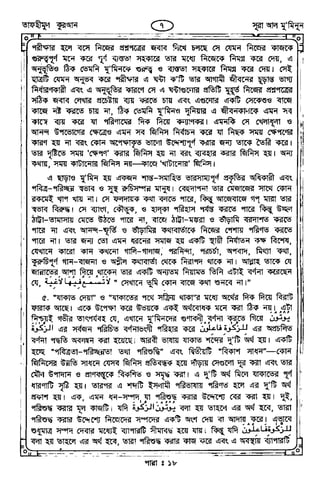 তাফহীমুল কুরআন ৭ সূরা আল মু'মিনুন
পরীক্ষার হলে বসে নিজের প্রশ্নপত্রের জবাব লিখে চলছে সে যেমন নিজের কাজকে
গুরুত্বপূর্ণ মনে করে পূর্ণ ব্যস্ততা সহকারে তার মধ্যে নিজেকে নিমগ্ন করে দেয়, এ
অনুভূতিও ঠিক তেমনি মু'মিনকে গুরুত্ব ও ব্যস্ততা সহকারে নিমগ্ন করে দেয়। সেই
ছাত্রটি যেমন অনুভব করে পরীক্ষার এ ঘন্টা ক'টি তার আগামী জীবনের চূড়ান্ত ভাগ্য
নির্ধারণকারী এবং এ অনুভূতির কারণে সে এ ঘন্টাগুলোর প্রতিটি মুহূর্ত নিজের প্রশ্নপত্রের
সঠিক জবাব লেখার প্রচেষ্টায় ব্যয় করতে চায় এবং এগুলোর একটি সেকেণ্ডও বাজে
কাজে নষ্ট করতে চায় না, ঠিক তেমনি মু'মিনও দুনিয়ার এ জীবনকালকে এমন সব
কাজে ব্যয় করে যা পরিণামের দিক দিয়ে কল্যাণকর। এমনকি সে খেলাধূলা ও
আনন্দ উপভোগের ক্ষেত্রেও এমন সব জিনিস নির্বাচন করে যা নিছক সময় ক্ষেপণের
কারণ হয় না বরং কোন অপেক্ষাকৃত ভালো উদ্দেশ্যপূর্ণ করার জন্য তাকে তৈরী করে।
তার দৃষ্টিতে সময় 'ক্ষেপণ' করার জিনিস হয় না বরং ব্যবহার করার জিনিস হয়। অন্য
কথায়, সময় কাটানোর জিনিস নয়—কাজে 'খাটানোর' জিনিস।
এ ছাড়াও মু'মিন হয় একজন শান্ত-সমাহিত ভারসাম্যপূর্ণ প্রকৃতির অধিকারী এবং
পবিত্র-পরিচ্ছন্ন স্বভাব ও সুস্থ রুচিসম্পন্ন মানুষ। বেহুদাপনা তার মেজাজের সাথে কোন
রকমেই খাপ খায় না। সে ফলদায়ক কথা বলতে পারে, কিন্তু আজেবাজে গপ মারা তার
স্বভাব বিরুদ্ধ। সে ব্যাংগ, কৌতুক, ও হালকা পরিহাস পর্যন্ত করতে পারে কিন্তু উচ্ছল
ঠাট্টা-তামাসায় মেতে উঠতে পারে না, বাজে ঠাট্টা-মস্করা ও ভাঁড়ামি বরদাশত করতে
পারে না এবং আনন্দ-ফূর্তি ও ভাঁড়ামির কথাবার্তাকে নিজের পেশায় পরিণত করতে
পারে না। তার জন্য তো এমন ধরনের সমাজ হয় একটি স্থায়ী নির্যাতন কক্ষ বিশেষ,
যেখানে কারো কান কখনো গালি-গালাজ, পরনিন্দা, পরচর্চা, অপবাদ, মিথ্যা কথা,
কুরুচিপূর্ণ গান-বাজনা ও অশ্লীল কথাবার্তা থেকে নিরাপদ থাকে না। আল্লাহ তাকে যে
জান্নাতের আশা দিয়ে থাকেন তার একটি অন্যতম নিয়ামত তিনি এটাই বর্ণনা করেছেন
যে, لَا تَسْمَعُ فِيهَا لَاغِيَةً "সেখানে তুমি কোন বাজে কথা শুনবে না।"
৫. "যাকাত দেয়া" ও "যাকাতের পথে সক্রিয় থাকা"র মধ্যে অর্থের দিক দিয়ে বিরাট
ফারাক আছে। একে উপেক্ষা করে উভয়কে একই অর্থবোধক মনে করা ঠিক নয়। এটা
নিশ্চয়ই গভীর তাৎপর্যবহ যে, এখানে মু'মিনদের গুণাবলী বর্ণনা করতে গিয়ে يُؤْتُونَ
الزَّكٰوةَ এর সর্বজন পরিচিত বর্ণনাভংগী পরিহার করে لِلزَّكٰوةِ فَاعِلُونَ এর অপ্রচলিত
বর্ণনা পদ্ধতি অবলম্বন করা হয়েছে। আরবী ভাষায় যাকাত শব্দের দু'টি অর্থ হয়। একটি
হচ্ছে "পবিত্রতা-পরিচ্ছন্নতা তথা পরিশুদ্ধি" এবং দ্বিতীয়টি "বিকাশ সাধন"—কোন
জিনিসের উন্নতি সাধনে যেসব জিনিস প্রতিবন্ধক হয়ে দাঁড়ায় সেগুলো দূর করা এবং তার
মৌল উপাদান ও প্রাণবস্তুকে বিকশিত ও সমৃদ্ধ করা। এ দু'টি অর্থ মিলে যাকাতের পূর্ণ
ধারণাটি সৃষ্টি হয়। তারপর এ শব্দটি ইসলামী পরিভাষায় পরিণত হলে এর দু'টি অর্থ
প্রকাশ হয়। এক, এমন ধন-সম্পদ যা পরিশুদ্ধ করার উদ্দেশ্যে বের করা হয়। দুই,
পরিশুদ্ধ করার মূল কাজটি। যদি يُؤْتُونَ الزَّكٰوةَ বলা হয় তাহলে এর অর্থ হবে, তারা
পরিশুদ্ধ করার উদ্দেশ্যে নিজেদের সম্পদের একটি অংশ দেয় বা আদায় করে। এভাবে
শুধুমাত্র সম্পদ দেবার মধ্যেই ব্যাপারটি সীমাবদ্ধ হয়ে যায়। কিন্তু যদি لِلزَّكٰوةِ فَاعِلُونَ
বলা হয় তাহলে এর অর্থ হবে, তারা পরিশুদ্ধ করার কাজ করে এবং এ অবস্থায় ব্যাপারটি
পারা : ১৮